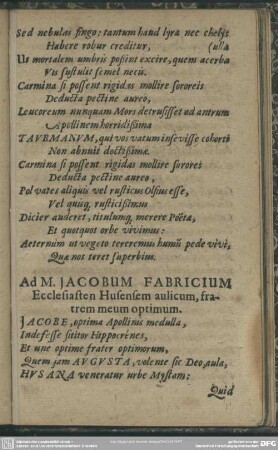 Sed nebulas fingo: tantum haud lyra nec chelys
Habere robur creditur, (ulla
Us mortalem umbris posint excire, quem acerba
Vis sustulit semel necis.
Carmina si possent rigidas mollire sorores
Deducta pectine aureo,
Leucoreum nunquam Mors detrusisset ad antrum
Apollinem horridisima
TAVBMANVM, qui vos vatum insevisse cohorti
Non abnuit doctisimæ.
Carmina si possent rigidas mollire sorores
Deducta pectine aureo,
Pol vates aliquis vel rusticus Olfius esse,
Vel quisq, rusticisimus
Dicier auderet, titulumq, merere Poëtæ,
Et quotquot orbe vivimus:
Aeternùm ut vegeto tereremus humũ pede vivi,
Quæ nos teret superbius.
Ad M. JACOBUM FABRICIUM
Ecclesiasten Husensem aulicum, fra-
trem meum optimum.
JACOBE, optima Apollinis medulla,
Indefesse sititor Hippocrenes,
Et une optime frater optimorum,
Quem jam AVGVSTA, volente sic Deo, aula,
HVSANA veneratur urbe Mystam:
Quid